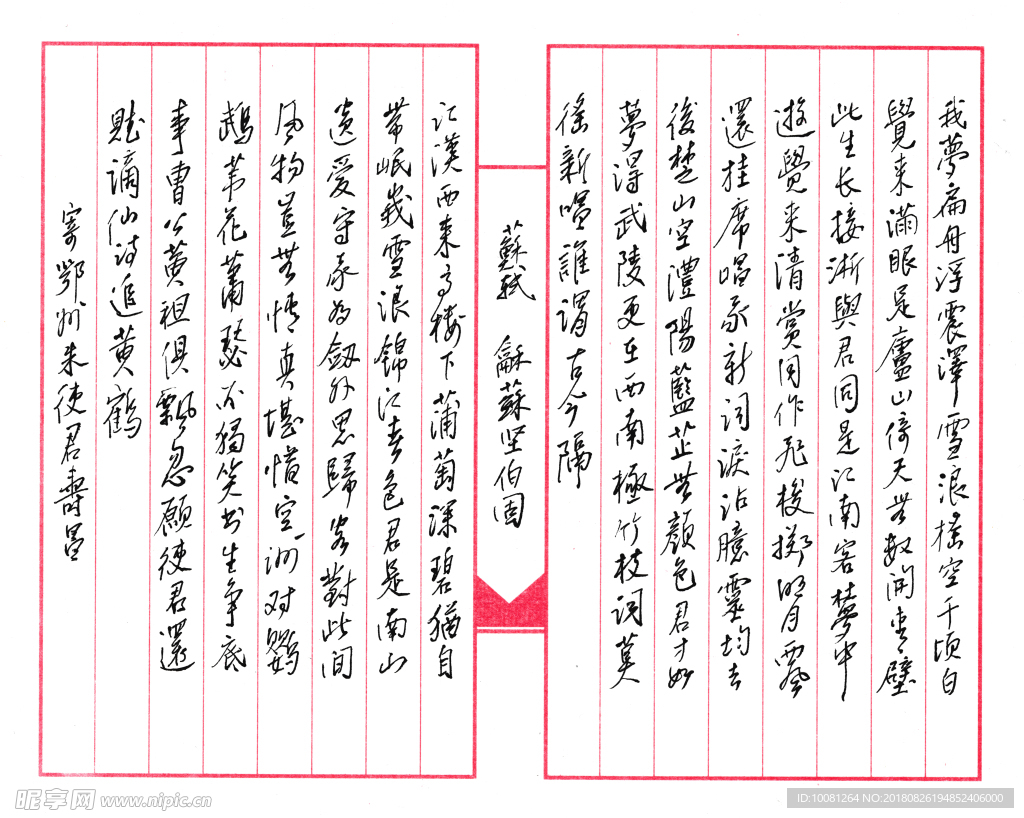 我夢扁舟浮震澤雪浪搖空千頃白
覺来滿眼是廬山倚天無數開青壁
此生长接淅與君同是江南客夢中
遊覺来清賞同作飛梭擲明月西風
還挂席唱我新词淚沾臆靈均去
後楚山空澧陽藍芷無顏色君才如
夢得武陵更在西南極竹枝词莫
徭新唱誰謂古今隔
蘇軾 龢蘇坚伯固
江漢西来高樓下蒲萄深碧猶自
帶岷峨雪浪錦江春色君是南山
遺愛守我为劔外思歸客對此间
風物豈無情真堪惜空洲对鸚
鵡苇花蕭瑟不獨笑书生争底
事曹公黄祖俱飄忽願使君還
賦谪仙诗追黄鶴
寄鄂州朱使君壽昌
昵享网 www.nipic.cn
ID:10081264 NO:20180826194852406000